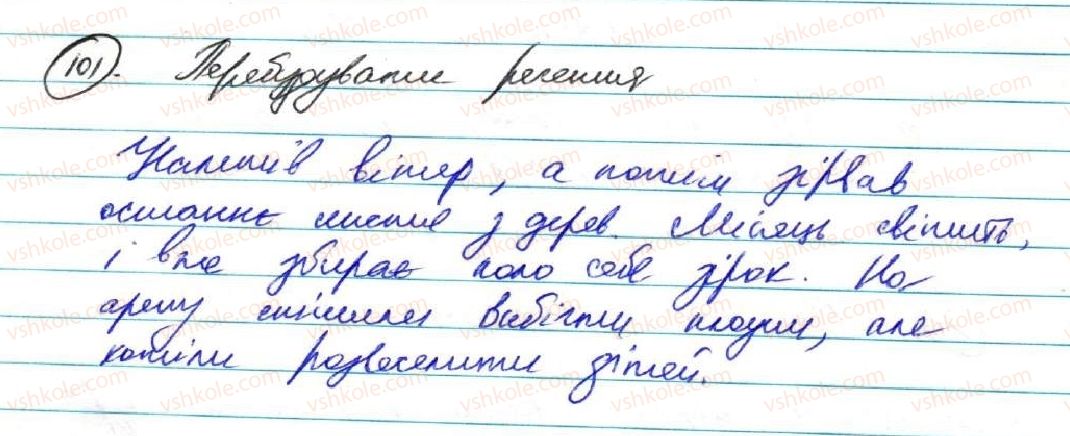 101. Перебудувати речення
Налетів вітер, а потім зірвав
останнє листя з дерев. Місяць світить,
і вже збирає коло себе зірок. На
арену вибігти клоуни, але
хотіли розвеселити дітей.